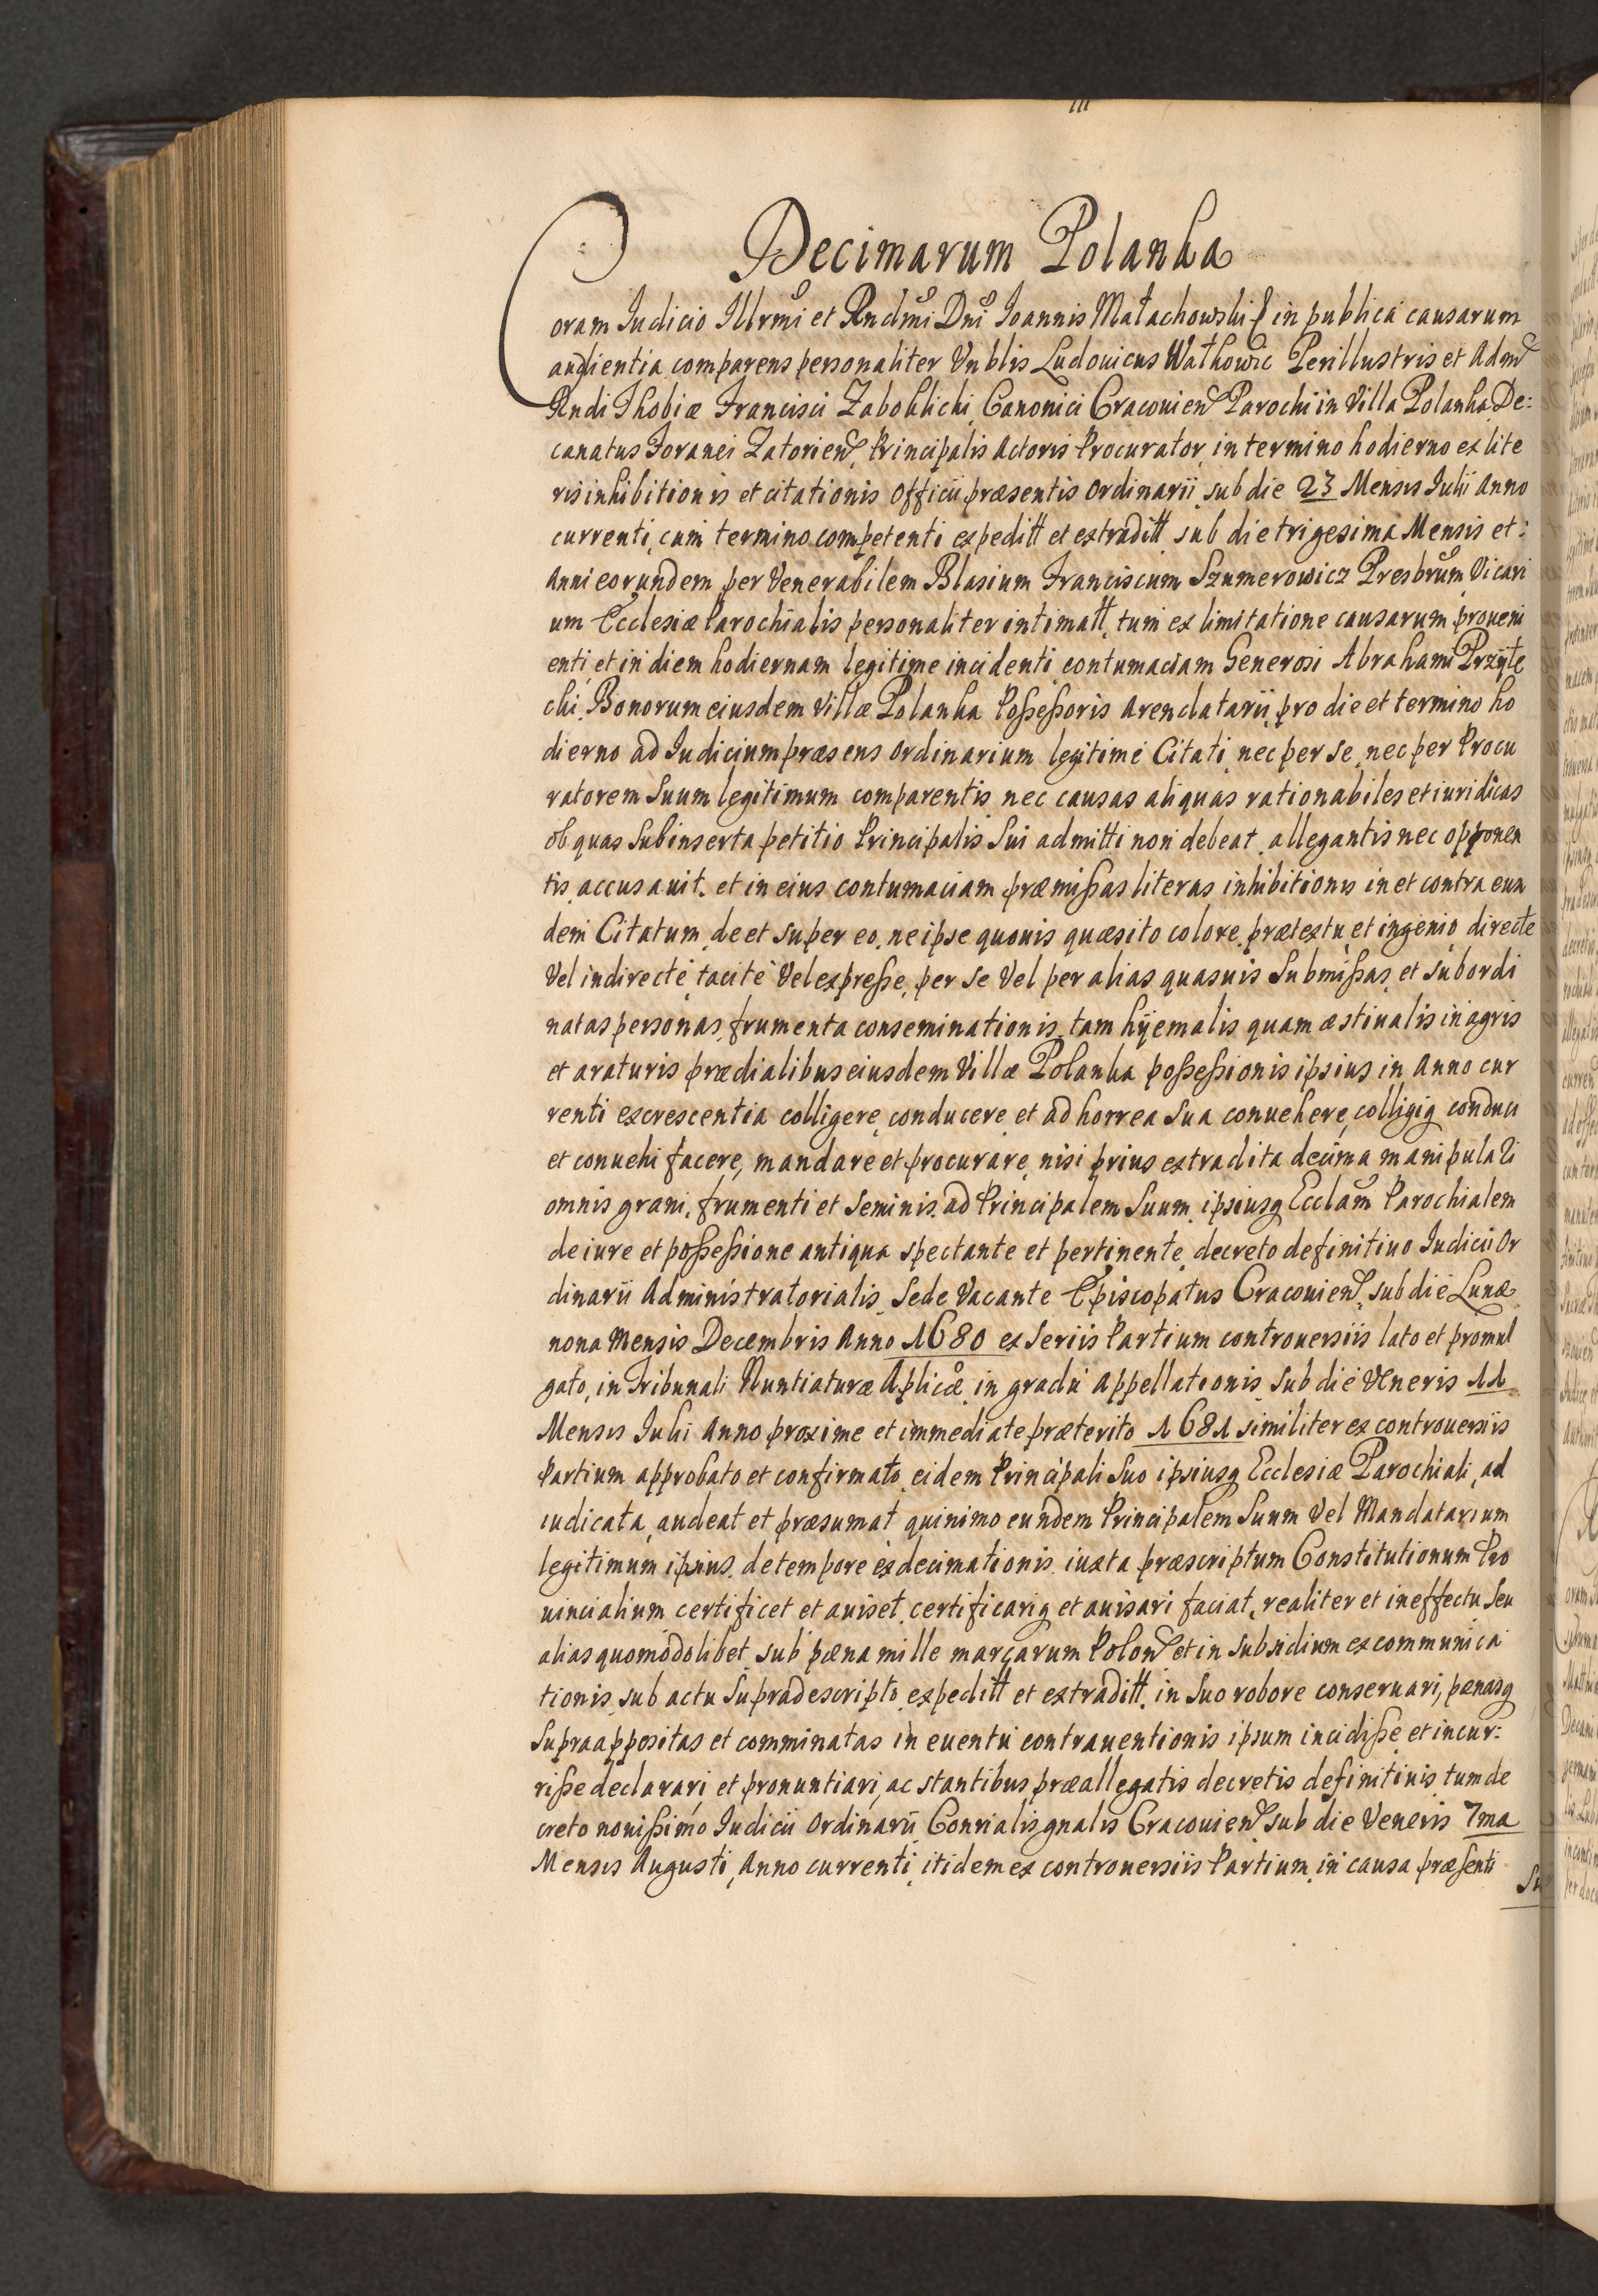 Decimarum Polanka
Coram Iudicio Illrmi et Rndmi Dni Ioannis Małachowski in publica causarum
audientia comparens personaliter Vnblis Ludouicus Wałkowic Perillustris et Adm
Rndi Thobiæ Francisci Zaboklicki, Canonici Cracouien Parochi in Villa Polanka De:
canatus Foranei Zatorien, Principalis Actoris Procurator, in termino hodierno ex lite
ris inhibitionis et citationis Officii præsentis Ordinarii, sub die 23 Mensis Iulii Anno
currenti, cum termino competenti expeditt et extraditt, sub die trigesima Mensis et:
Anni eorundem per Venerabilem Blasium Franciscum Szumerowicz Presbrum Vicari
um Ecclesiæ Parochialis personaliter intimatt, tum ex limitatione causarum proueni
enti, et in diem hodiernam legitime incidenti, contumaciam Generosi Abrahami Przyłe
cki, Bonorum eiusdem Villæ Polanka Possessoris Arendatarii, pro die et termino ho
dierno ad Iudicium præsens Ordinarium legitime Citati, nec per se, nec per Procu
ratorem Suum legitimum comparentis, nec causas aliquas rationabiles et iuridicas
ob quas Subinserta petitio Principalis Sui admitti non debeat, allegantis nec opponen
tis, accusauit. et in eius contumaciam præmissas literas inhibitionis in et contra eun
dem Citatum, de et super eo, ne ipse quouis quæsito colore, prætextu, et ingenio directe
Vel indirecte, tacite Vel expresse, per se Vel per alias quasuis Submissas, et subordi
natas personas, frumenta conseminationis, tam hyemalis quam æstiualis in agris
et araturis prædialibus eiusdem Villæ Polanka possessionis ipsius in Anno cur
renti excrescentia colligere, conducere, et ad horrea Sua conuehere, colligiq conduci
et conuehi facere, mandare et procurare, nisi prius extradita decima manipulati
omnis grani, frumenti et Seminis, ad Principalem Suum, ipsiusq Ecclam Parochialem
de iure et possessione antiqua spectante et pertinente, decreto definitiuo Iudicii Or
dinarii Administratorialis, Sede Vacante Episcopatus Cracouien, sub die Lunæ
nona Mensis Decembris Anno 1680 ex Seriis Partium controuersiis lato et promul
gato, in Tribunali Nuntiaturæ Aplicæ, in gradu Appellationis, sub die Veneris 11
Mensis Iulii Anno proxime et immediate præterito 1681 similiter ex controuersiis
Partium approbato et confirmato, eidem Principali Suo ipsiusq Ecclesiæ Parochiali, ad
iudicata, audeat et præsumat, quinimo eundem Principalem Suum Vel Mandatarium
legitimum ipsius, de tempore exdecimationis, iuxta præscriptum Constitutionum Pro
uincialium certificet et auiset, certificariq et auisari faciat, realiter et in effectu Seu
alias quomodolibet, sub pæna mille marcarum Polon et in Subsidium excommunica
tionis, sub actu Supradescripto, expeditt et extraditt, in Suo robore conseruari, pænasq
Supraappositas et comminatas in euentu contrauentionis ipsum incidisse et incur:
risse declarari et pronuntiari, ac stantibus præallegatis decretis definitiuis, tum de
creto nouissimo Iudicii OrdinariiConrialis gnalis Cracouien sub die Veneris 7ma
Mensis Augusti, Anno currenti, itidem ex controuersiis Partium, in causa præsenti